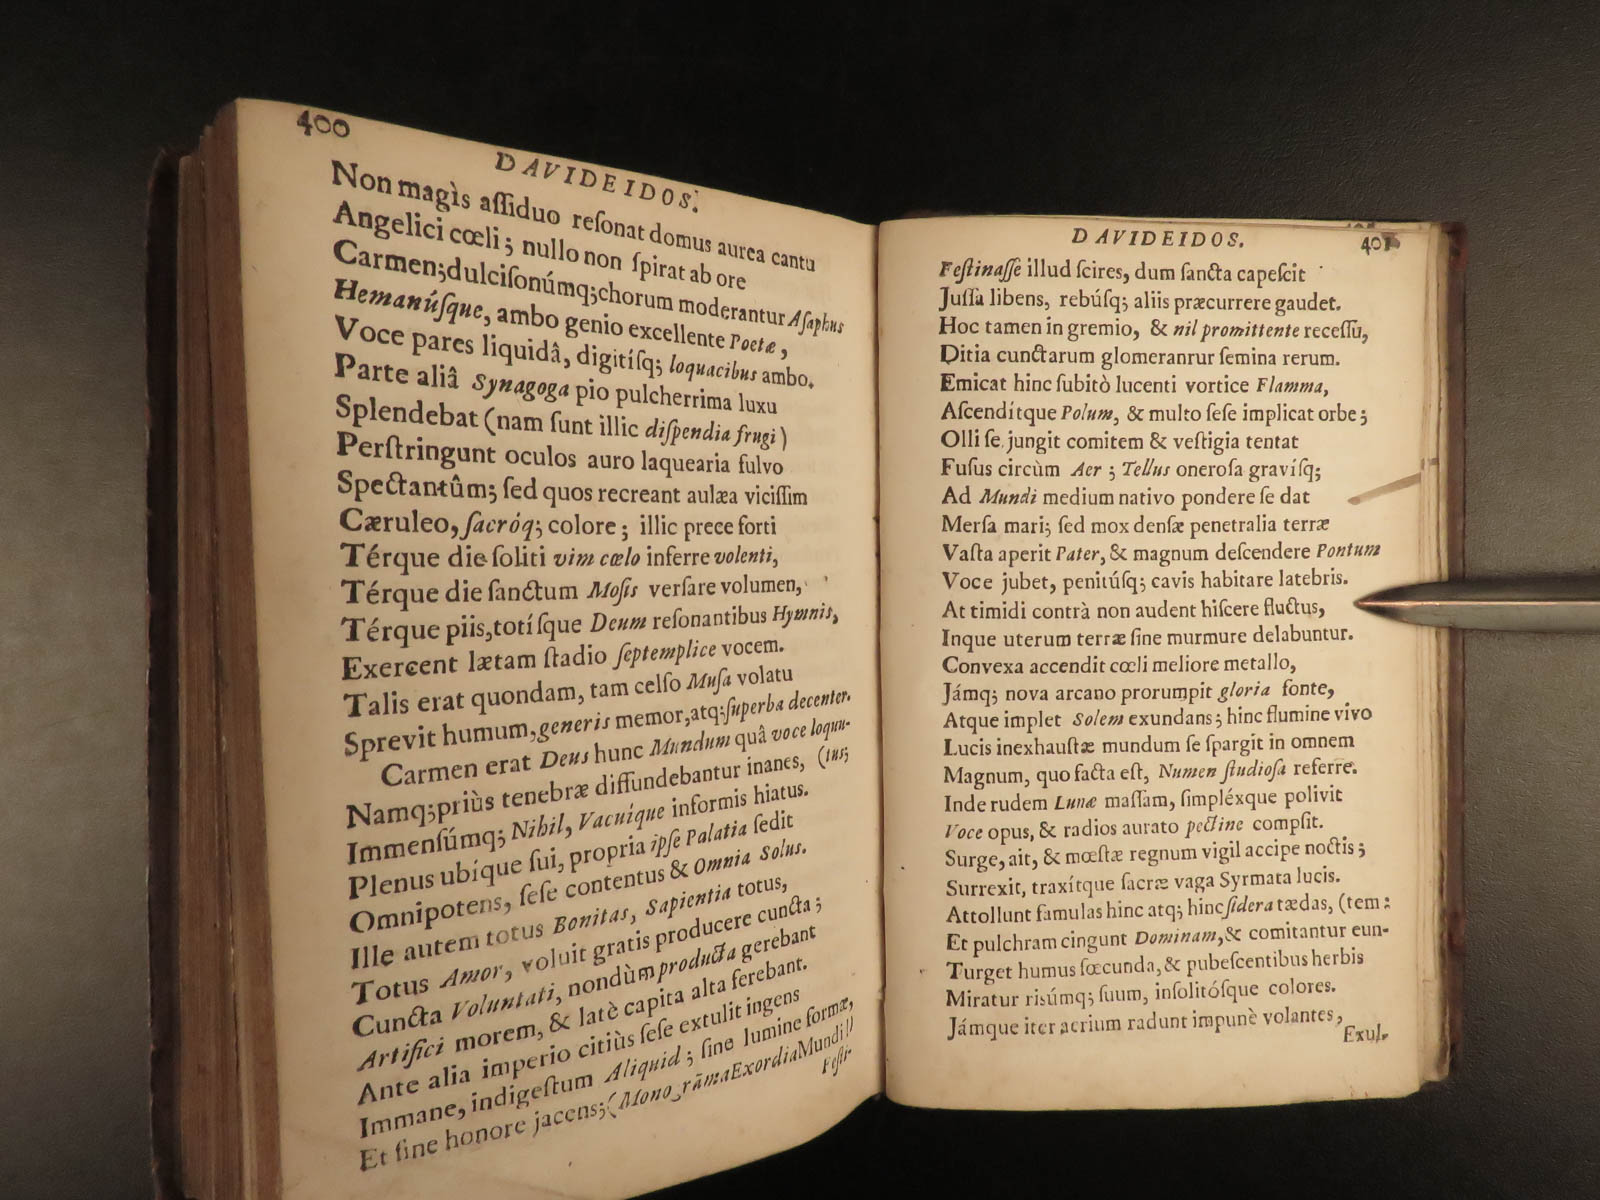 400
DAVIDEIDOS.
Non magìs aſſiduo reſonat domus aurea cantu
Angelici cœli; nullo non ſpirat ab ore
Carmen; dulciſonúmq; chorum moderantur Aſaphus
Hemanúſque, ambo genio excellente Poetæ,
Voce pares liquidâ, digitíſq; loquacibus ambo.
Parte aliâ Synagoga pio pulcherrima luxu
Splendebat (nam ſunt illic diſpendia frugi)
Perſtringunt oculos auro laquearia fulvo
Spectantûm; ſed quos recreant aulæa viciſſim
Cæruleo, ſacróq; colore; illic prece forti
Térque die ſoliti vim cœlo inferre volenti,
Térque die ſanctum Moſis verſare volumen,
Térque piis, totíſque Deum reſonantibus Hymnis,
Exercent lætam ſtadio ſeptemplice vocem.
Talis erat quondam, tam celſo Muſa volatu
Sprevit humum, generis memor, atq; ſuperba decenter.
Carmen erat Deus hunc Mundum quâ voce loquu-
Namq; priùs tenebræ diffundebantur inanes, (tus;
Immenſúmq; Nihil, Vacuíque informis hiatus.
Plenus ubíque ſui, propria ipſe Palatia ſedit
Omnipotens, ſeſe contentus & Omnia Solus.
Ille autem totus Bonitas, Sapientia totus,
Totus Amor, voluit gratis producere cuncta;
Cuncta Voluntati, nondùm producta gerebant
Artifici morem, & latè capita alta ferebant.
Ante alia imperio citiùs ſeſe extulit ingens
Immane, indigeſtum Aliquid; ſine lumine formæ,
Et ſine honore jacens; ( Exordia Mundi!)
Feſti-
DAVIDEIDOS.
401
Feſtinaſſe illud ſcires, dum ſancta capeſcit
Juſſa libens, rebúſq; aliis præcurrere gaudet.
Hoc tamen in gremio, & nil promittente receſſu,
Ditia cunctarum glomeranrur ſemina rerum.
Emicat hinc ſubitò lucenti vortice Flamma,
Aſcendítque Polum, & multo ſeſe implicat orbe;
Olli ſe jungit comitem & veſtigia tentat
Fuſus circùm Aer; Tellus oneroſa gravíſq;
Ad Mundi medium nativo pondere ſe dat
Merſa mari; ſed mox denſæ penetralia terræ
Vaſta aperit Pater, & magnum deſcendere Pontum
Voce jubet, penitúſq; cavis habitare latebris.
At timidi contrà non audent hiſcere fluctus,
Inque uterum terræ ſine murmure delabuntur.
Convexa accendit cœli meliore metallo,
Jámq; nova arcano prorumpit gloria fonte,
Atque implet Solem exundans; hinc flumine vivo
Lucis inexhauſtæ mundum ſe ſpargit in omnem
Magnum, quo facta eſt, Numen ſtudioſa referre.
Inde rudem Lunæ maſſam, ſimpléxque polivit
Voce opus, & radios aurato pectine compſit.
Surge, ait, & mœſtæ regnum vigil accipe noctis;
Surrexit, traxítque ſacræ vaga Syrmata lucis.
Attollunt famulas hinc atq; hinc ſidera tædas, (tem:
Et pulchram cingunt Dominam, & comitantur eun-
Turget humus fœcunda, & pubeſcentibus herbis
Miratur risúmq; ſuum, inſolitóſque colores.
Jámque iter aerium radunt impunè volantes,
Exul-